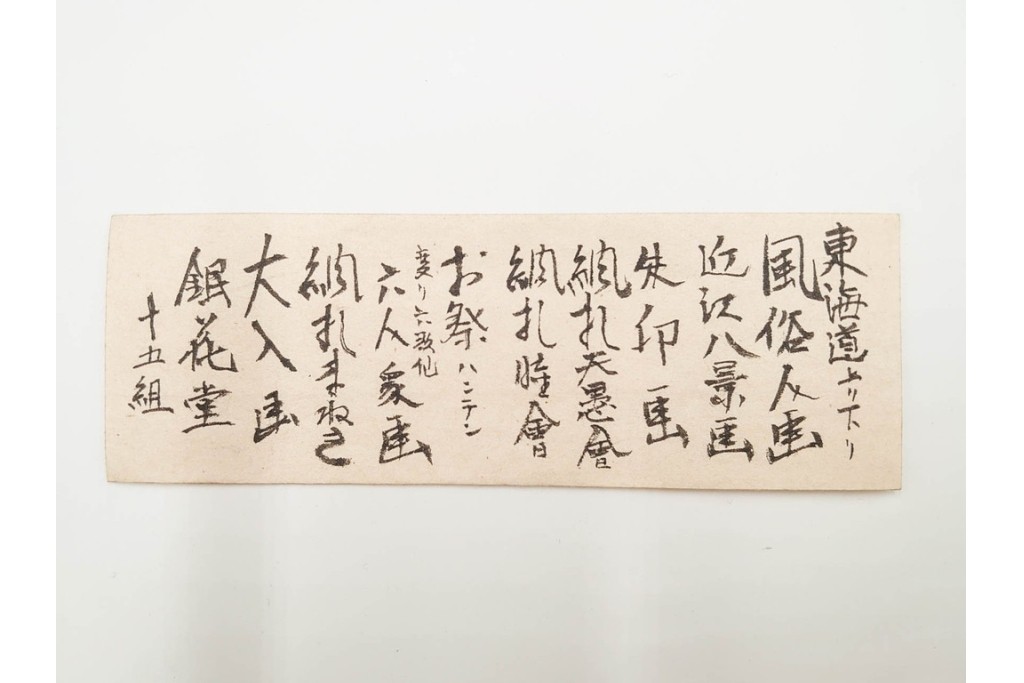 東海道より下り
風俗人画
近江八景画
朱印画
納札天愚會
納札睦會
お祭ハンテン
変り六歌仙
六人衆画
納札まねき
大入画
銀花堂
十五組